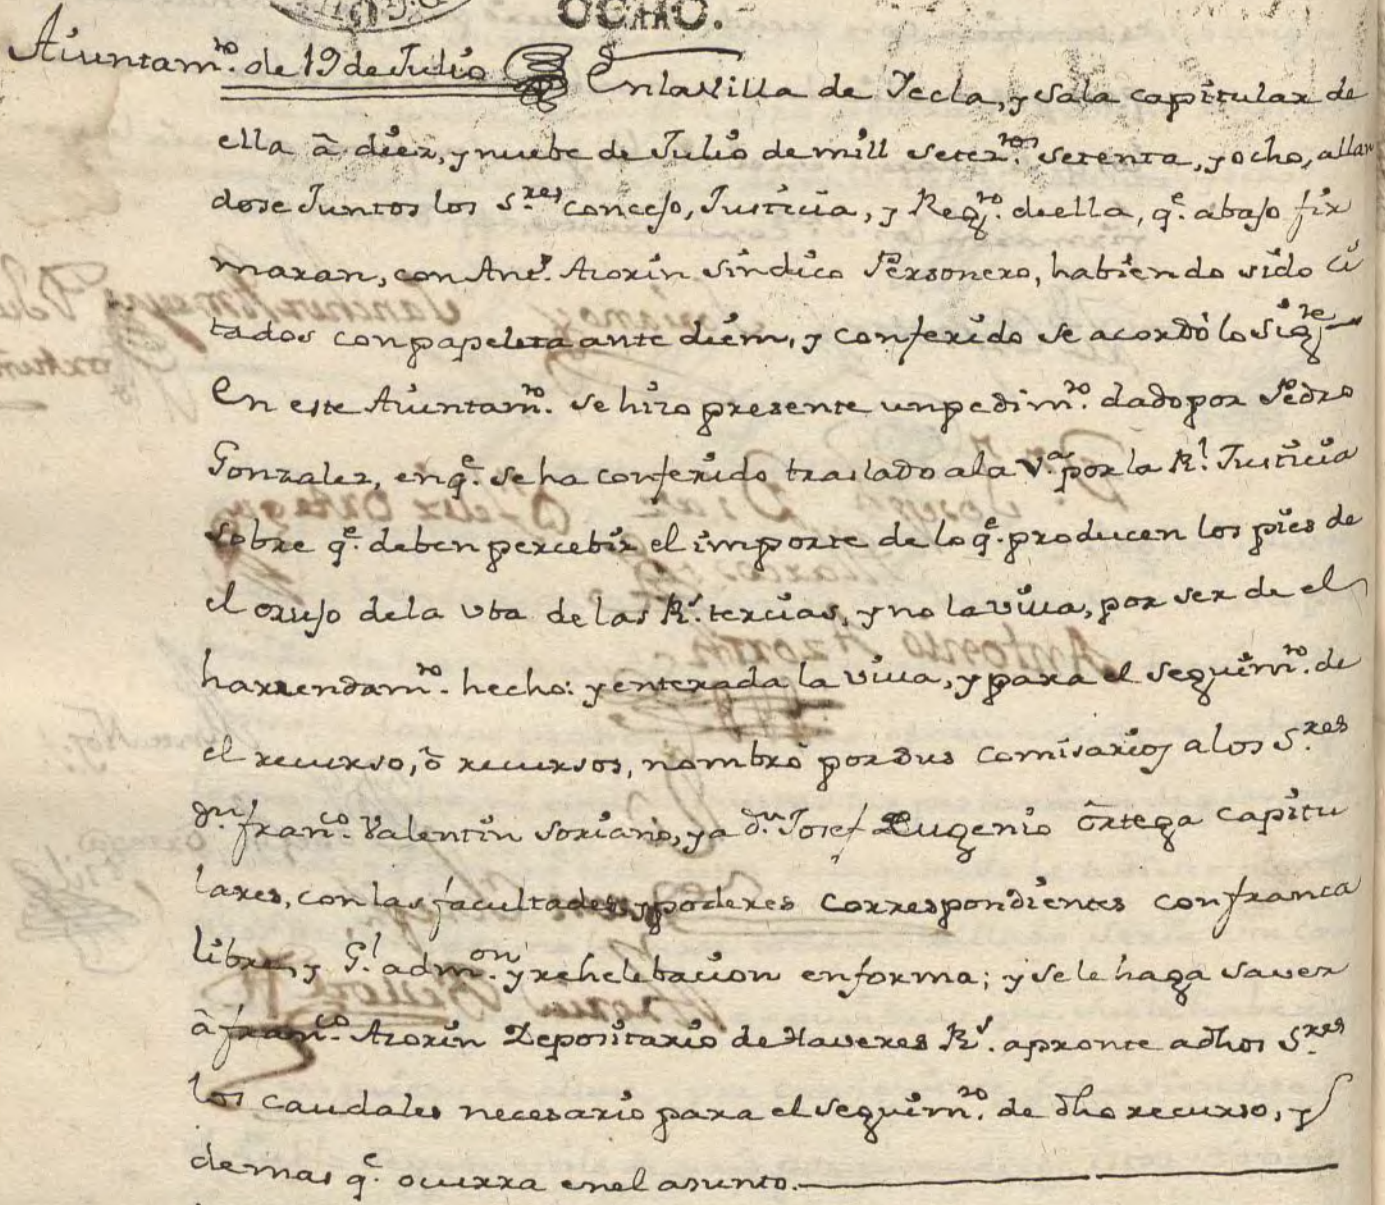 OCHO.
Aiuntam.to de 19 de Julio En la Villa de Yecla, y sala capitular de
ella â diez, y nuebe de Julio de mill setez.tos setenta, y ocho, allan
dose Juntos los S.res concejo, Justicia, y Reg.to de ella, q.e abajo fir
maran, con Ant.o Azorin sindico Personero, habiendo sido ci
tados con papeleta ante diem, y conferido se acordó lo sig.te
En este Aiuntam.to se hizo presente un pedim.to dado por Pedro
Gonzalez, en q.e se ha conferido traslado a la V.a por la R.l Justicia
sobre q.e deben percebir el importe de lo q.e producen los pies de
el orujo de la Vba de las R.s tercias, y no la villa, por ser de el
harrendam.to hecho: y enterada la villa, y para el seguim.to de
el recurso, ô recursos, nombró por sus comisarios a los S.res
d.n fran.co Valentin soriano, y a d.n Josef Eugenio Ôrtega capitu
lares, con las facultades, y poderes correspondientes con franca
libre, y G.l adm.on y rehelebacion en forma; y se le haga saver
â fran.co Azorin Depositario de Haveres R.s apronte a dhos S.res
los caudales necesario para el seguim.to de dho recurso, y
demas q.e ocurra en el asunto.